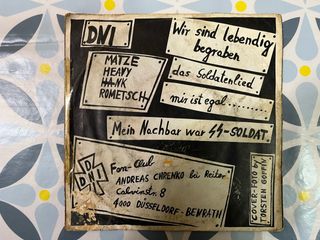 DNI
MATZE
HEAVY
HANK
ROMETSCH
Wir sind lebendig
begraben
das Soldatenlied
mir ist egal..........
Mein Nachbar war SS-SOLDAT
DNI
Fan-Club
ANDREAS CHRENKO bei Reiter
Calvinstr. 8
4000 DÜSSELDORF-BENRATH
COVER-FOTO by
TORSTEN